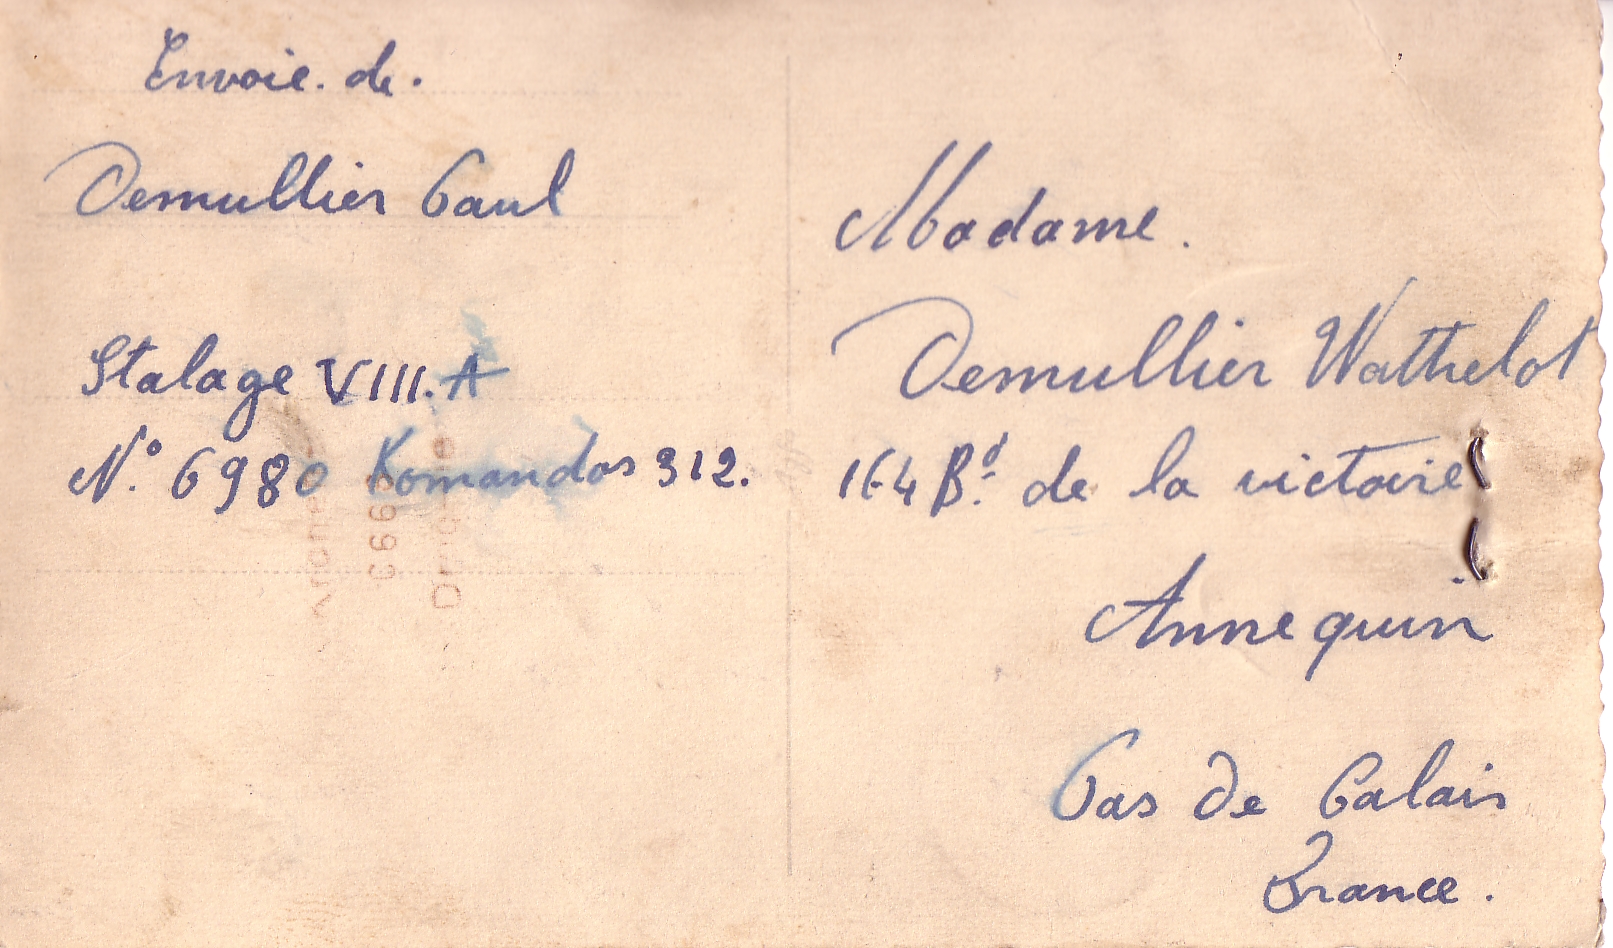 Envoie. de.
Demullier Paul
Stalage VIII.A
N° 6980 Komandos 312.
Madame.
Demullier Wathelot
164 Bd. de la victoire
Annequin
Pas de Calais
France.